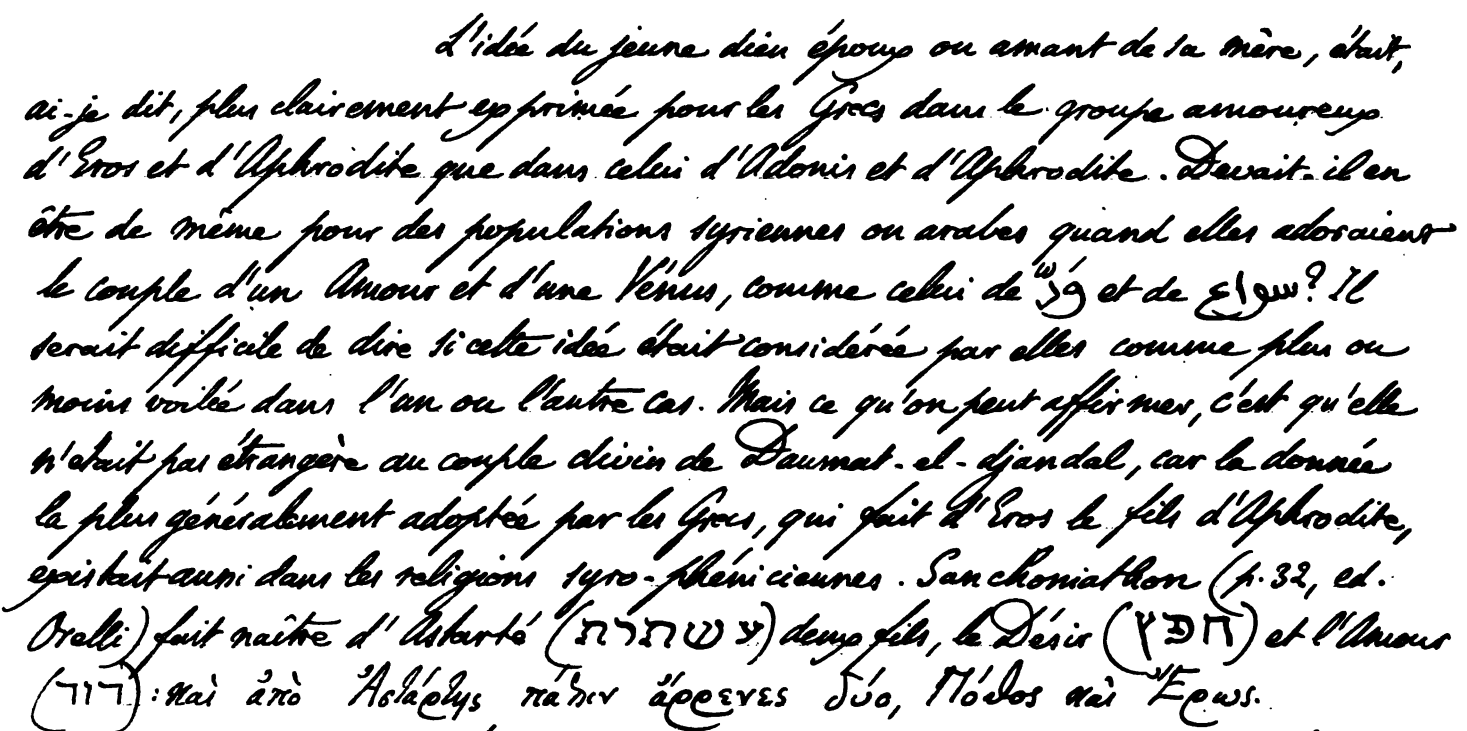 L'idée du jeune dieu époux ou amant de sa mère, était,
ai-je dit, plus clairement exprimée pour les Grecs dans le groupe amoureux
d'Eros et d'Aphrodite que dans celui d'Adonis et d'Aphrodite. Devait-il en
être de même pour des populations syriennes ou arabes quand elles adoraient
le couple d'un Amour et d'une Vénus, comme celui de وَدّ et de سواع? Il
serait difficile de dire si cette idée était considérée par elles comme plus ou
moins voilée dans l'un ou l'autre cas. Mais ce qu'on peut affirmer, c'est qu'elle
n'était pas étrangère au couple divin de Daumat-el-djandal, car la donnée
la plus généralement adoptée par les Grecs, qui fait d'Eros le fils d'Aphrodite,
existait aussi dans les religions syro-phéniciennes. Sanchoniathon (p. 32, ed.
Orelli) fait naître d'Astarté (עשתרת) deux fils, le Désir (חפץ) et l'Amour
(דוד): καὶ ἀπὸ Ἀστάρτης πάλιν ἄρρενες δύο, Πόθος καὶ Ἔρως.